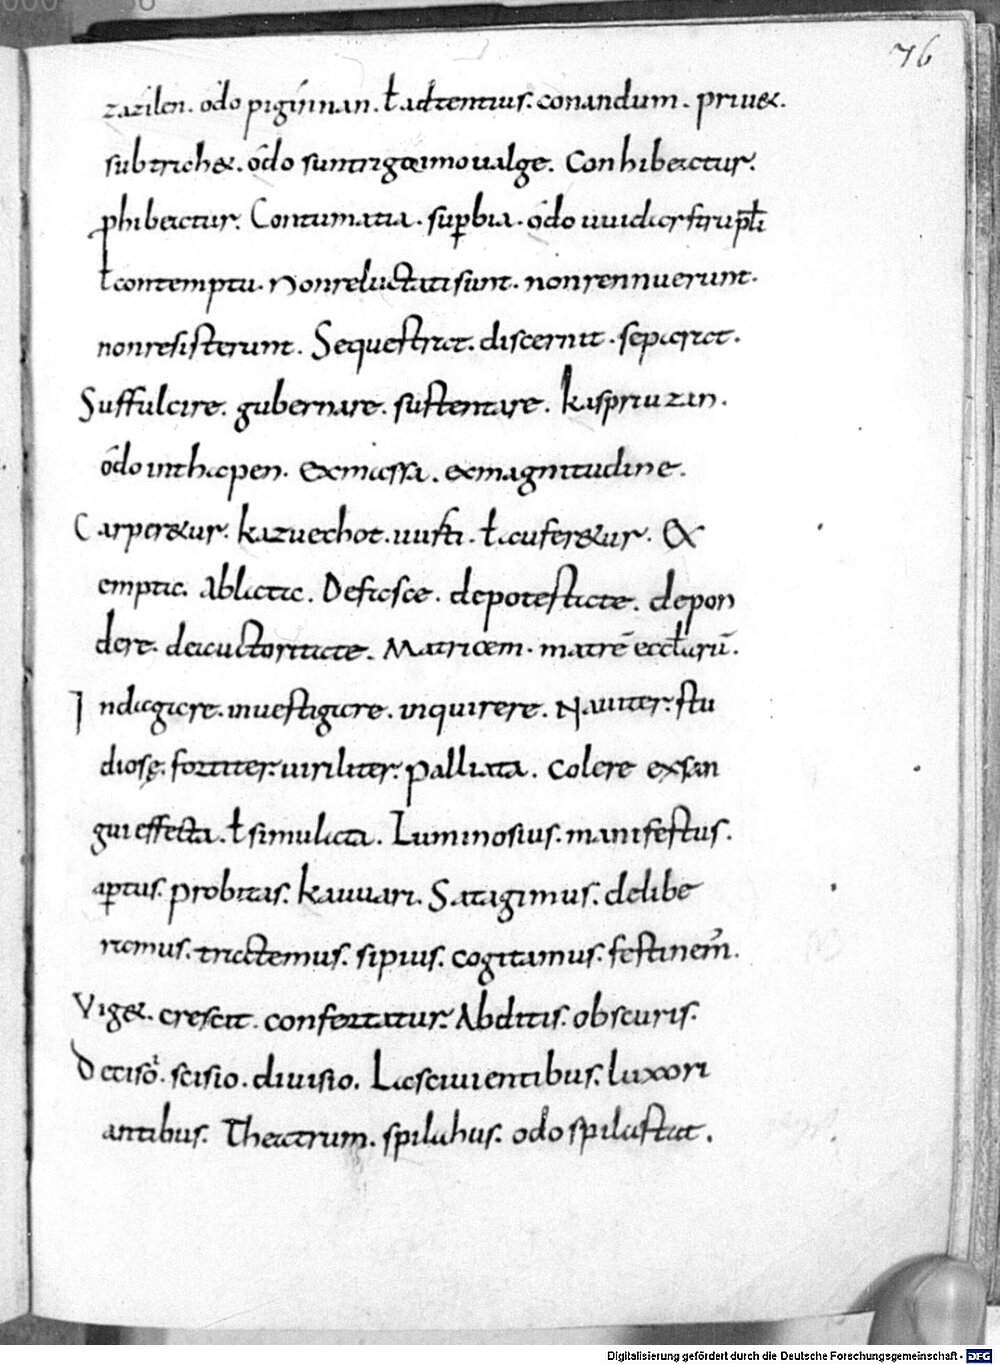 76
zazilen. odo piginnan. ł adtentius. conandum. priu&.
subtrich&. odo suntrigo imo ualge. Conhibeatur.
phibeatur. Contumatia. suꝑbia. odo uuidarstrupłi
ł contemptu. Non reluctati sunt. non rennuerunt.
non resisterunt. Sequestrat. discernit. separat.
Suffulcire. gubernare. sustentare. kaspriuzan.
odo inthapen. Ex massa. ex magnitudine.
Carper&ur. kazuechot. uufti. ł aufer&ur. Ex
empta. Ablata. Defasce. de potestate. depon
dere. de auctoritate. Matricem. matrē eccłarū.
Indagare. inuestigare. inquirere. Nauiter. stu
diosę. fortiter. uiriliter. Palliata. colere exsan
gui effecta. ł simulata. Luminosius. manifestus.
aptus. probitas. kauuari. Satagimus. delibe
ramus. tractemus. sipius. cogitamus. festinem̄.
Vig&. crescit. confortatur. Abditis. obscuris.
Deciso. scisio. diuisio. Lasciuientibus. luxori
antibus. Theatrum. spilahus. odo spilastat.
Digitalisierung gefördert durch die Deutsche Forschungsgemeinschaft - DFG